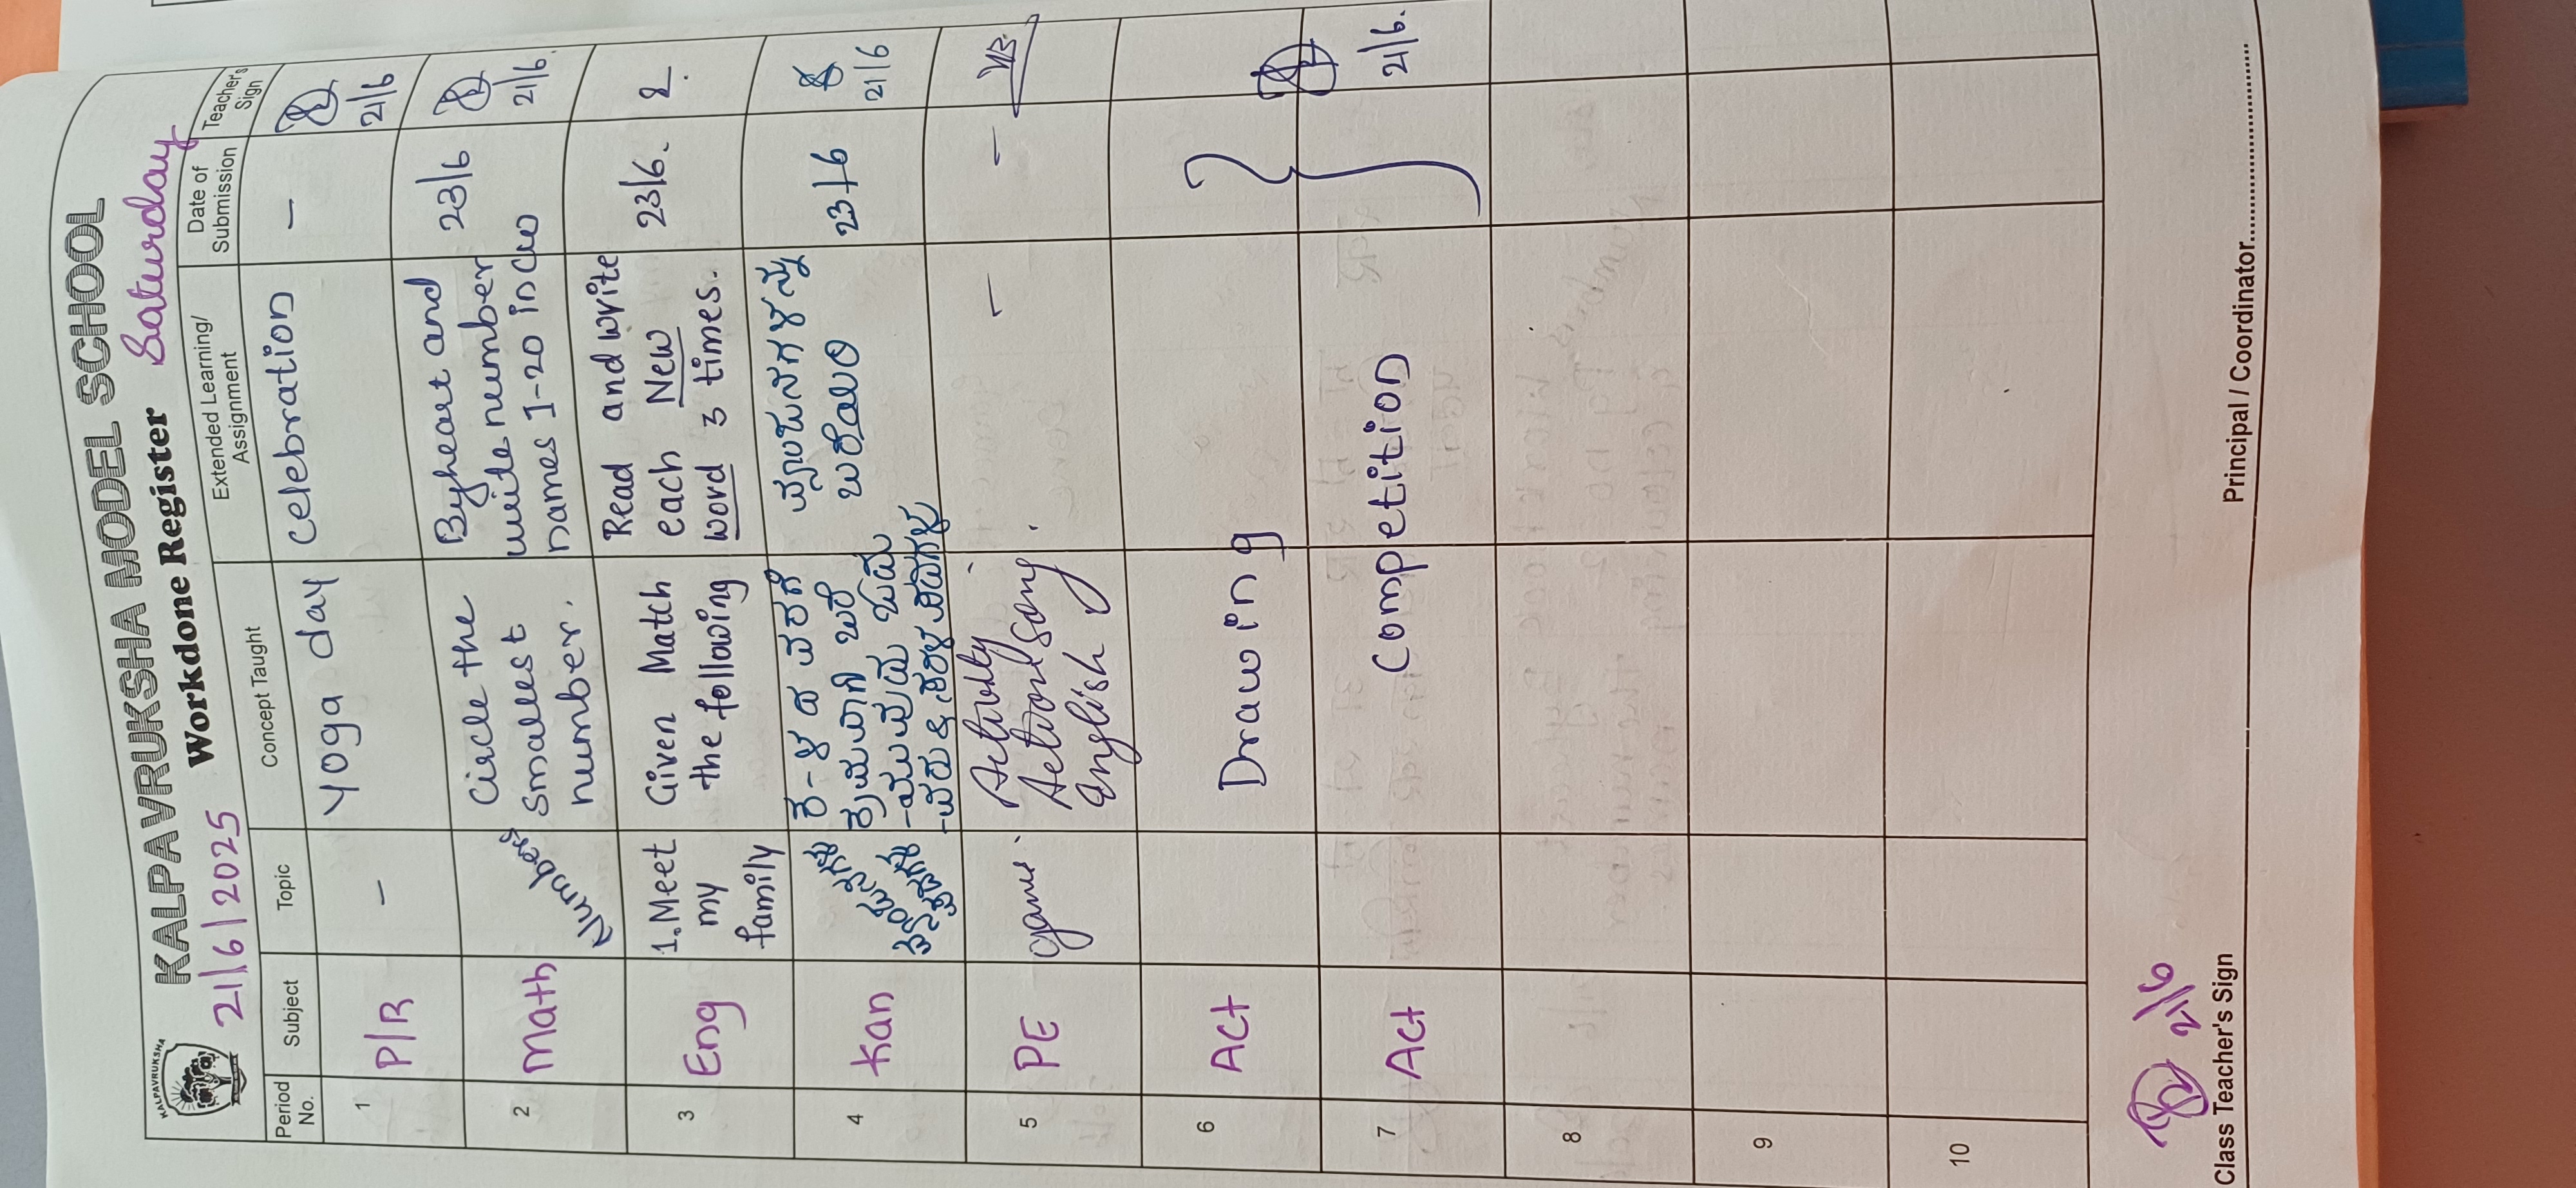 KALPAVRUKSHA
KALPAVRUKSHA MODEL SCHOOL
21/6/2025 Workdone Register Saturday
Period No. Subject Topic Concept Taught Extended Learning/ Assignment Date of Submission Teacher's Sign
1 P/R - Yoga day celebration - 21/6
2 Math Numbers Circle the
smallest
number.
Byheart and
write number
names 1-20 in CW
23/6 21/6.
3 Eng 1. Meet
my
family
Given Match
the following
Read and write
each New
word 3 times.
23/6.
4 Kan
ಬರೆಯಿರಿ
23/6 21/6
5 PE game. Activity
Action song
English
- -
6 Act Drawing
7 Act Competition
21/6.
8
9
10
21/6
Class Teacher's Sign Principal / Coordinator